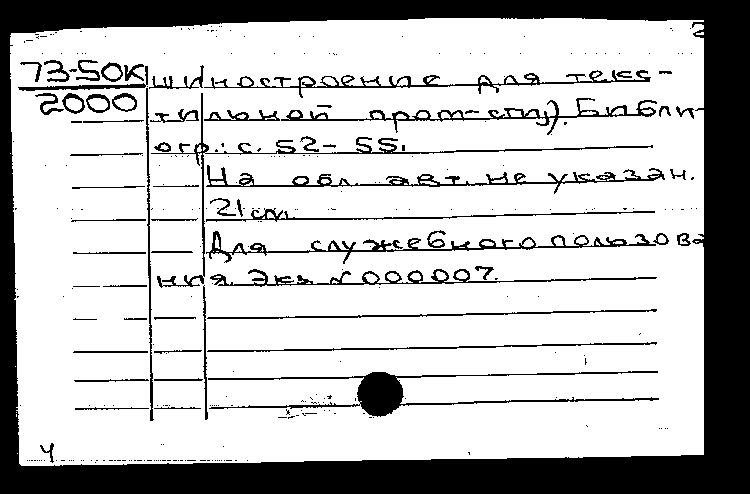 2
73-50К шиностроение для текс-
2000 тильной пром-сти). Библи-
огр.: с. 52-55.
На обл. авт. не указан.
21 см.
Для служебного пользова
ния. Экз. № 000007.
4